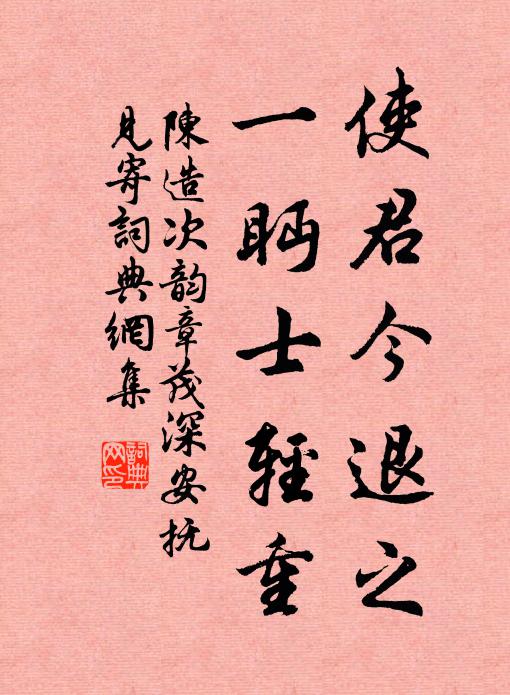 使君今退之
一眄士輕重
陳造次韵章茂深安抚
見寄詞典網集
詞典
网印